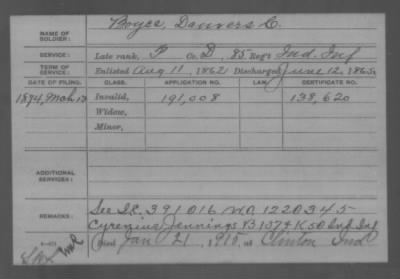 NAME OF SOLDIER: Boyce, Danvers C.
SERVICE: Late rank, P Co. D, 85 Reg't Ind. Inf
TERM OF SERVICE: Enlisted Aug 11, 1862 Discharged June 12, 1865
DATE OF FILING. CLASS. APPLICATION NO. LAW. CERTIFICATE NO.
Invalid, 191,008 138,620
Widow,
Minor,
ADDITIONAL SERVICES:
REMARKS: See I.C. 391016 W.O. 1220345
Cyrenius Jennings B 157 & K 50 Ind Inf
Died Jan 21, 1915, at Clinton Ind